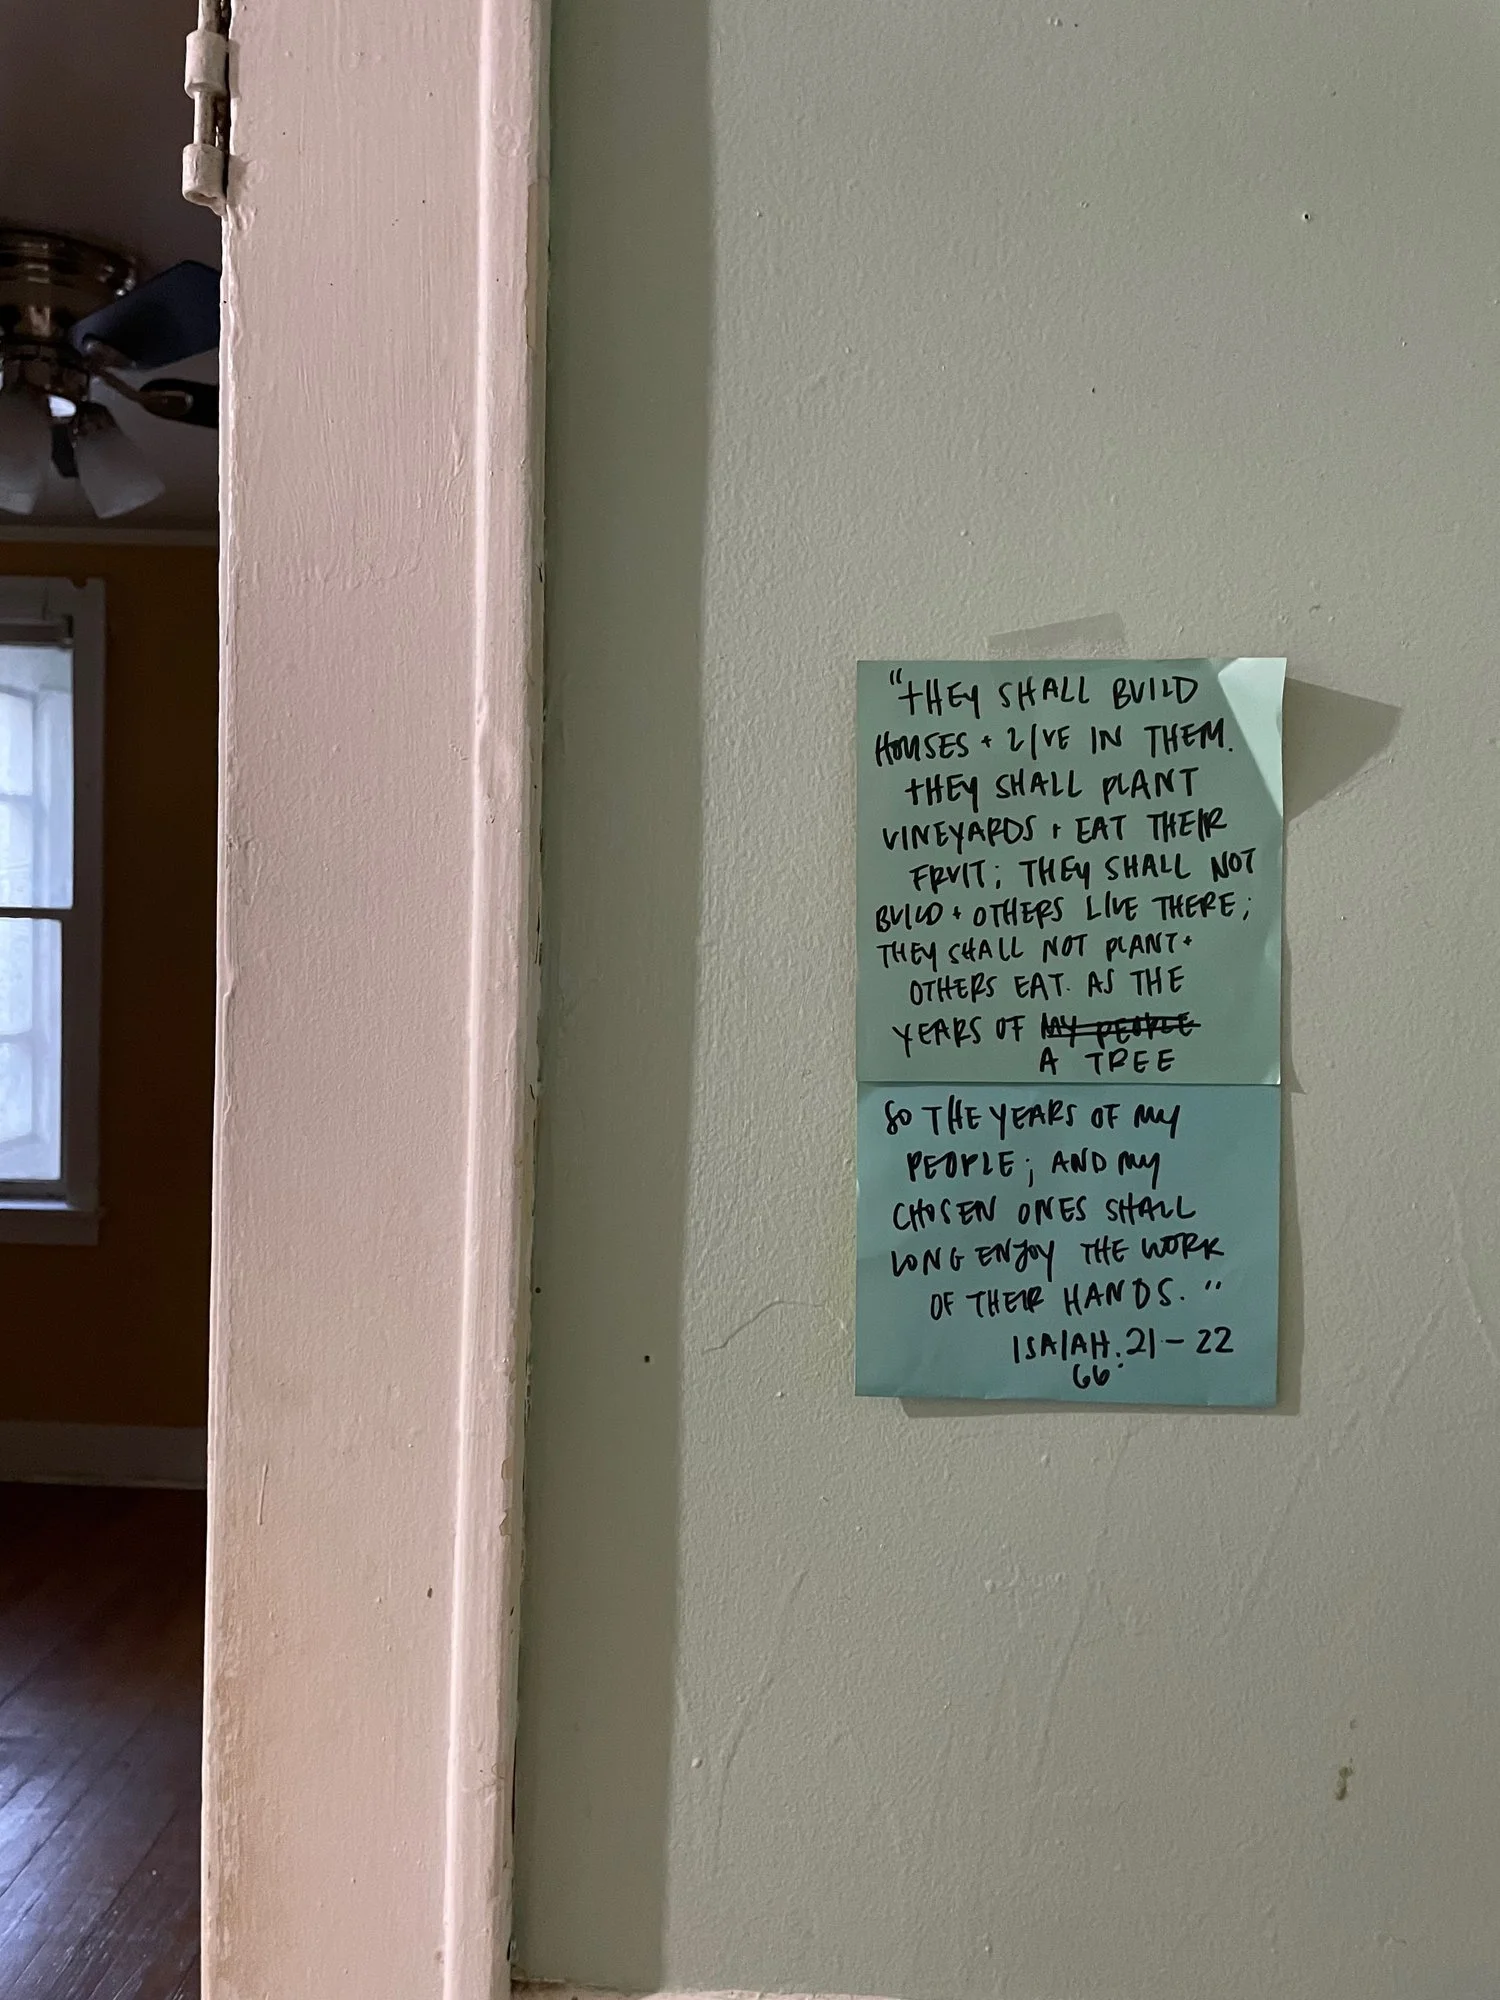 "THEY SHALL BUILD
HOUSES + LIVE IN THEM.
THEY SHALL PLANT
VINEYARDS + EAT THEIR
FRUIT; THEY SHALL NOT
BUILD + OTHERS LIVE THERE;
THEY SHALL NOT PLANT +
OTHERS EAT. AS THE
YEARS OF MY PEOPLE
A TREE
SO THE YEARS OF MY
PEOPLE; AND MY
CHOSEN ONES SHALL
LONG ENJOY THE WORK
OF THEIR HANDS."
ISAIAH. 21-22
66: